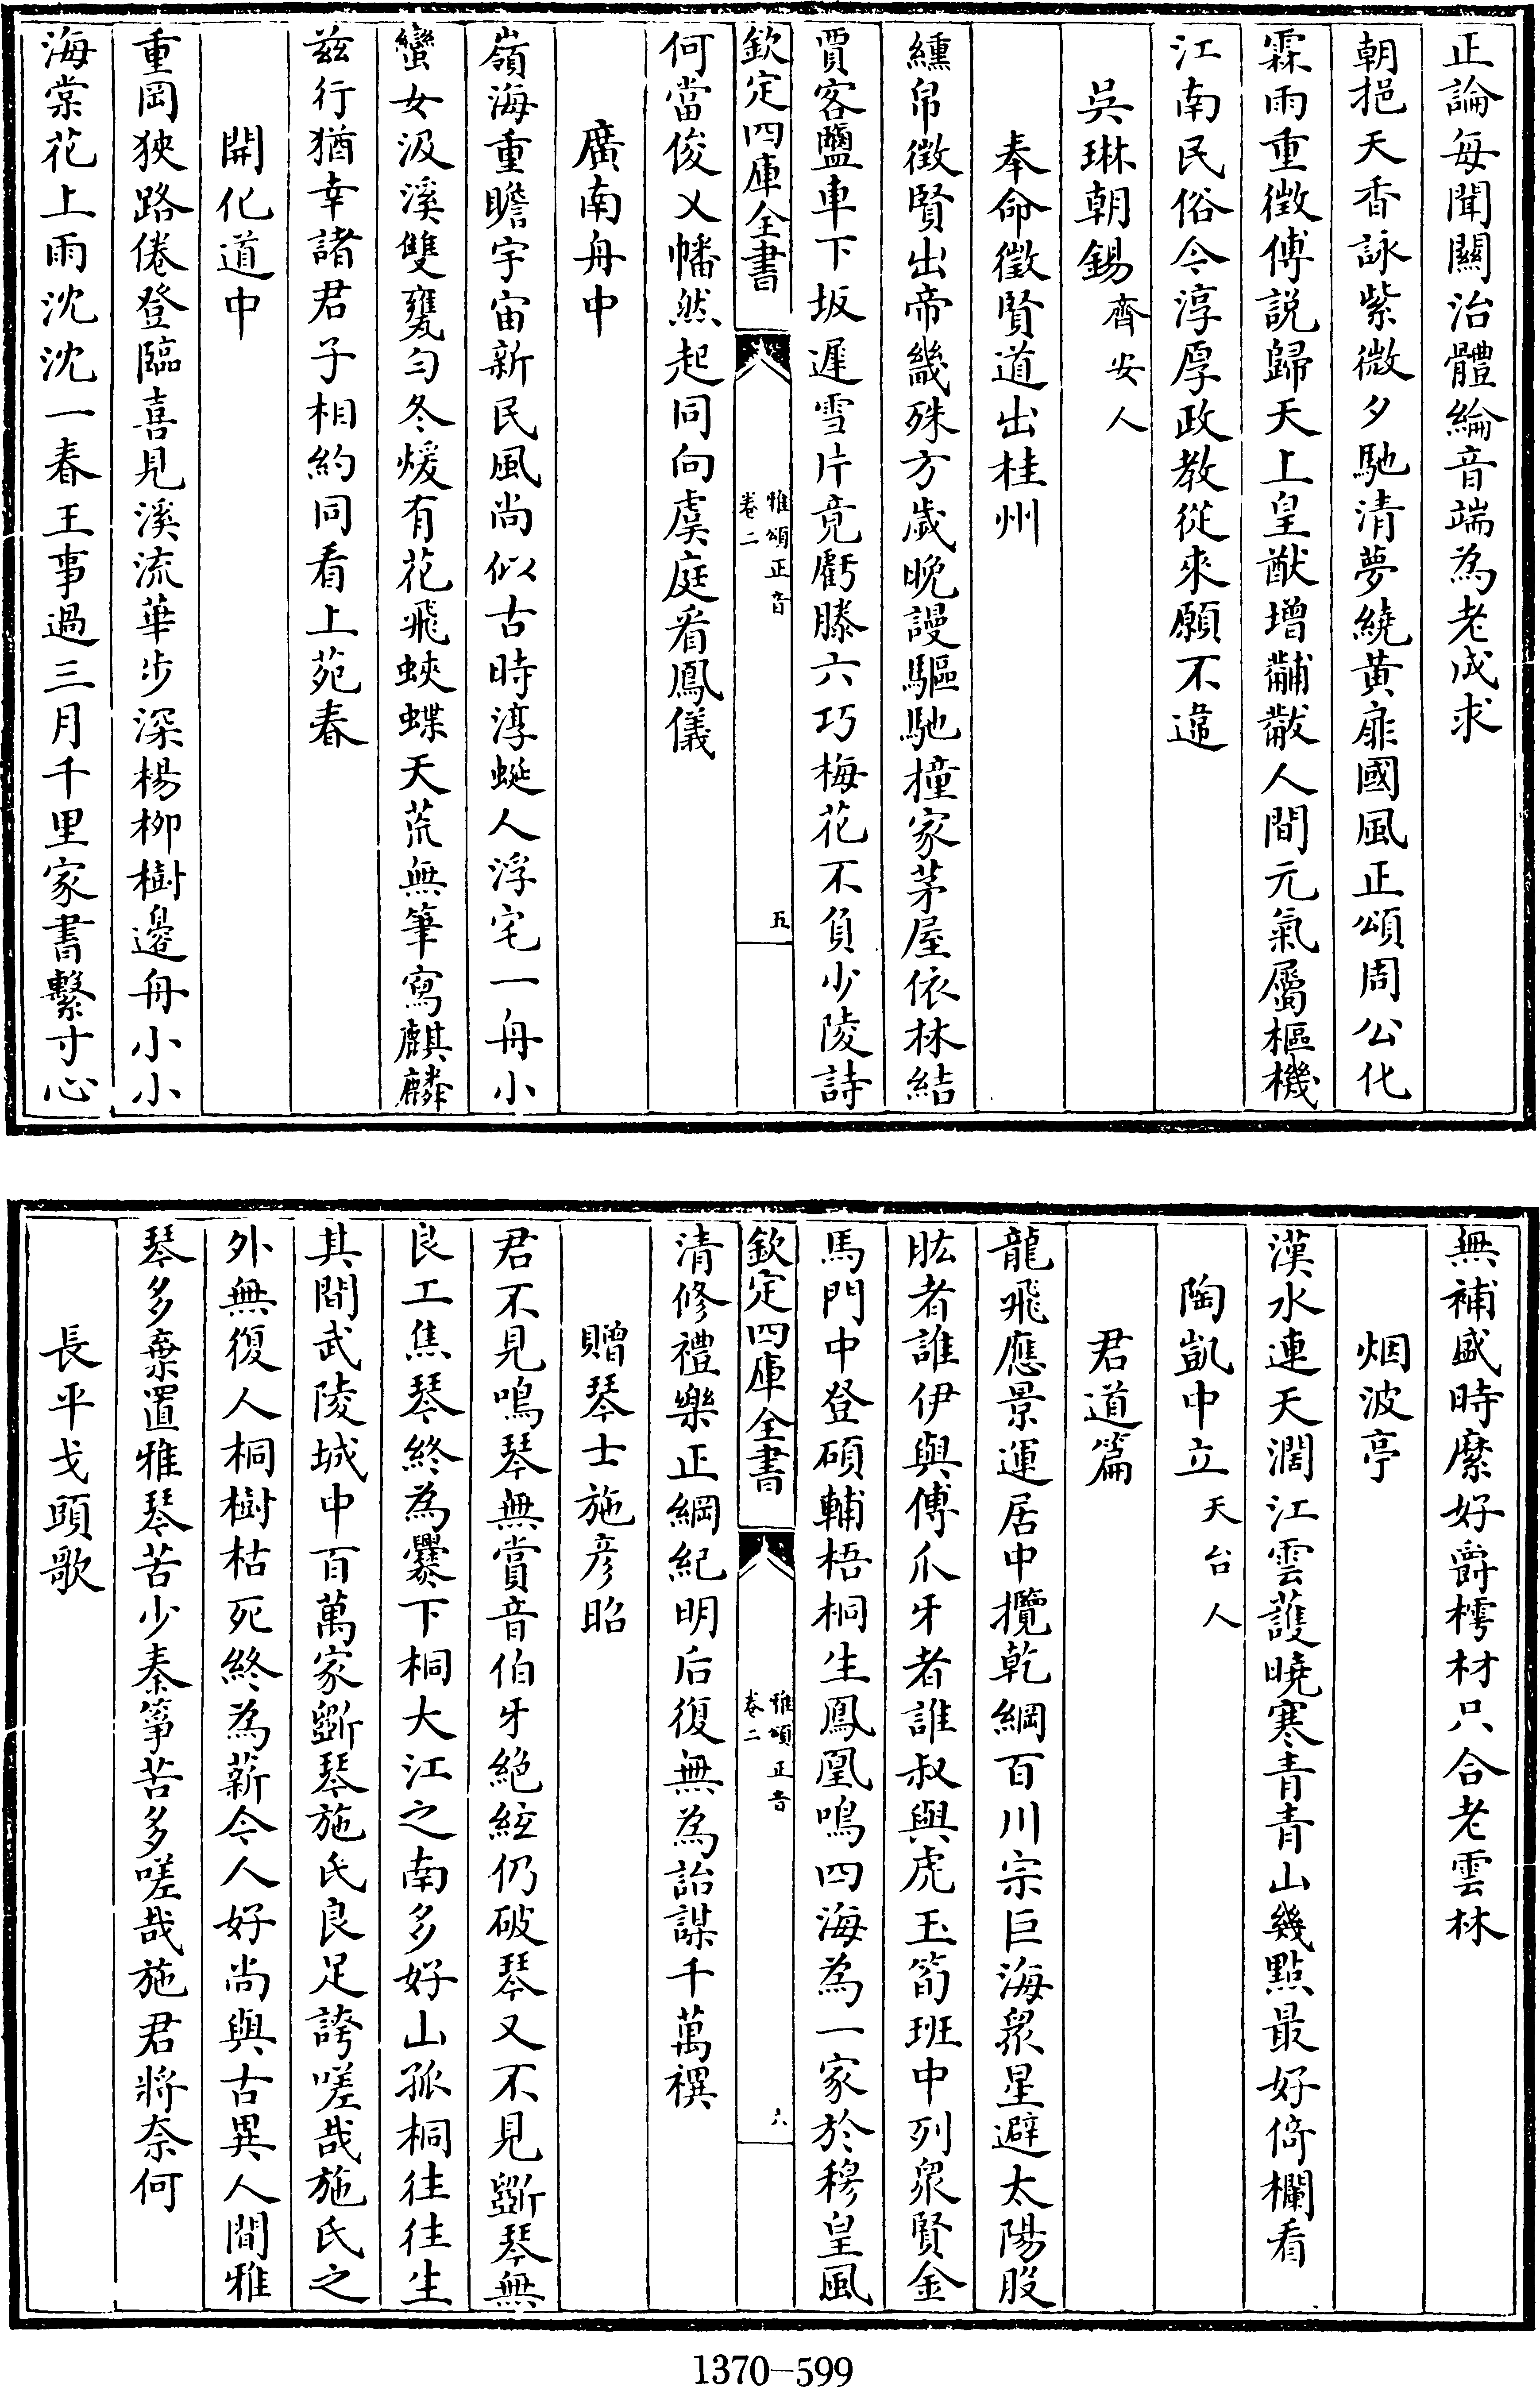 正論每聞關治體綸音端為老成求
朝挹天香詠紫微夕馳清夢繞黄扉國風正頌周公化
霖雨重徵傅説歸天上皇猷增黼黻人間元氣屬樞機
江南民俗今淳厚政教從來願不違
吳琳朝錫齊安人
奉命徵賢道出桂州
纁帛徵賢出帝畿殊方歲晚謾驅馳撞家茅屋依林結
賈客鹽車下坂遲雪片竟虧滕六巧梅花不負少陵詩
欽定四庫全書
雅頌正音
卷二
五
何當俊乂幡然起同向虞庭看鳳儀
廣南舟中
嶺海重瞻宇宙新民風尚似古時淳蜒人浮宅一舟小
蠻女汲溪雙甕勻冬煖有花飛蛺蝶天荒無筆寫麒麟
兹行猶幸諸君子相約同看上苑春
開化道中
重岡狹路倦登臨喜見溪流華步深楊柳樹邊舟小小
海棠花上雨沈沈一春王事過三月千里家書繫寸心
無補盛時縻好爵樗材只合老雲林
烟波亭
漢水連天濶江雲䕶曉寒青青山幾點最好倚欄看
陶凱中立天台人
君道篇
龍飛應景運居中攬乾綱百川宗巨海衆星避太陽股
肱者誰伊與傅爪牙者誰叔與虎玉筍班中列衆賢金
馬門中登碩輔梧桐生鳳凰鳴四海為一家於穆皇風
欽定四庫全書
雅頌正音
卷二
六
清修禮樂正綱紀明后復無為詒謀千萬禩
贈琴士施彦昭
君不見鳴琴無賞音伯牙絶絃仍破琴又不見斵琴無
良工焦琴終為爨下桐大江之南多好山孤桐往往生
其間武陵城中百萬家斵琴施氏良足誇嗟哉施氏之
外無復人桐樹枯死終為薪今人好尚與古異人間雅
琴多棄置雅琴苦少秦箏苦多嗟哉施君將奈何
長平戈頭歌
1370-599